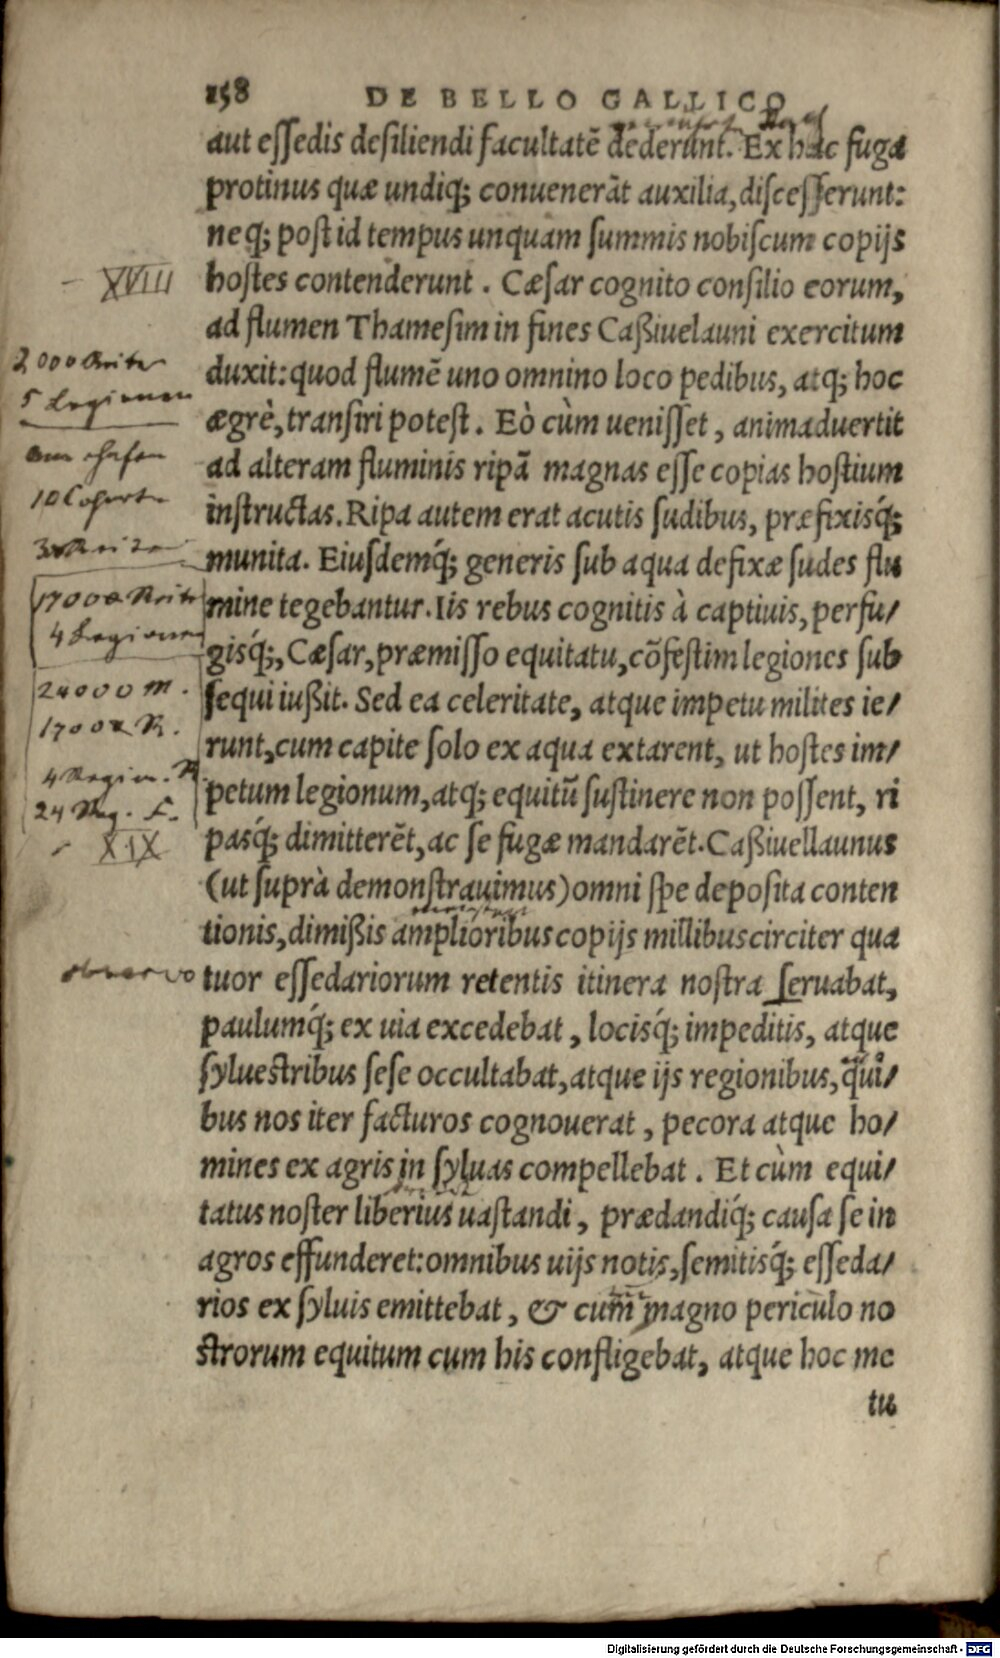 158 DE BELLO GALLICO
aut essedis desiliendi facultatē dederunt. Ex hac fuga
protinus quæ undiq; conuenerāt auxilia, discesserunt:
neq; post id tempus unquam summis nobiscum copijs
XVIII
hostes contenderunt. Cæsar cognito consilio eorum,
ad flumen Thamesim in fines Caßiuelauni exercitum
2000 Reiter
duxit: quod flumē uno omnino loco pedibus, atq; hoc
5 Legionen
ægrè, transiri potest. Eò cùm uenisset, animaduertit
ad alteram fluminis ripā magnas esse copias hostium
10 Cohorten
instructas. Ripa autem erat acutis sudibus, præfixisq́;
munita. Eiusdemq́; generis sub aqua defixæ sudes flu
1700 Reiter
mine tegebantur. Iis rebus cognitis à captiuis, perfu/
4 Legionen
gisq́;, Cæsar, præmisso equitatu, cōfestim legiones sub
24000 M.
sequi iußit. Sed ea celeritate, atque impetu milites ie/
1700 R.
runt, cum capite solo ex aqua extarent, ut hostes im/
4 Regim. R.
petum legionum, atq; equitū sustinere non possent, ri
24 Reg. F.
pasq́; dimitterēt, ac se fugæ mandarēt. Caßiuellaunus
XIX
(ut suprà demonstrauimus) omni spe deposita conten
tionis, dimißis amplioribus copijs millibus circiter qua
observo
tuor essedariorum retentis itinera nostra seruabat,
paulumq́; ex uia excedebat, locisq́; impeditis, atque
syluestribus sese occultabat, atque ijs regionibus, qui/
bus nos iter facturos cognouerat, pecora atque ho/
mines ex agris in syluas compellebat. Et cùm equi/
tatus noster liberius uastandi, prædandiq́; causa se in
agros effunderet: omnibus uijs notis, semitisq́; esseda/
rios ex syluis emittebat, & cum magno periculo no
strorum equitum cum his confligebat, atque hoc me
tu
Digitalisierung gefördert durch die Deutsche Forschungsgemeinschaft - DFG